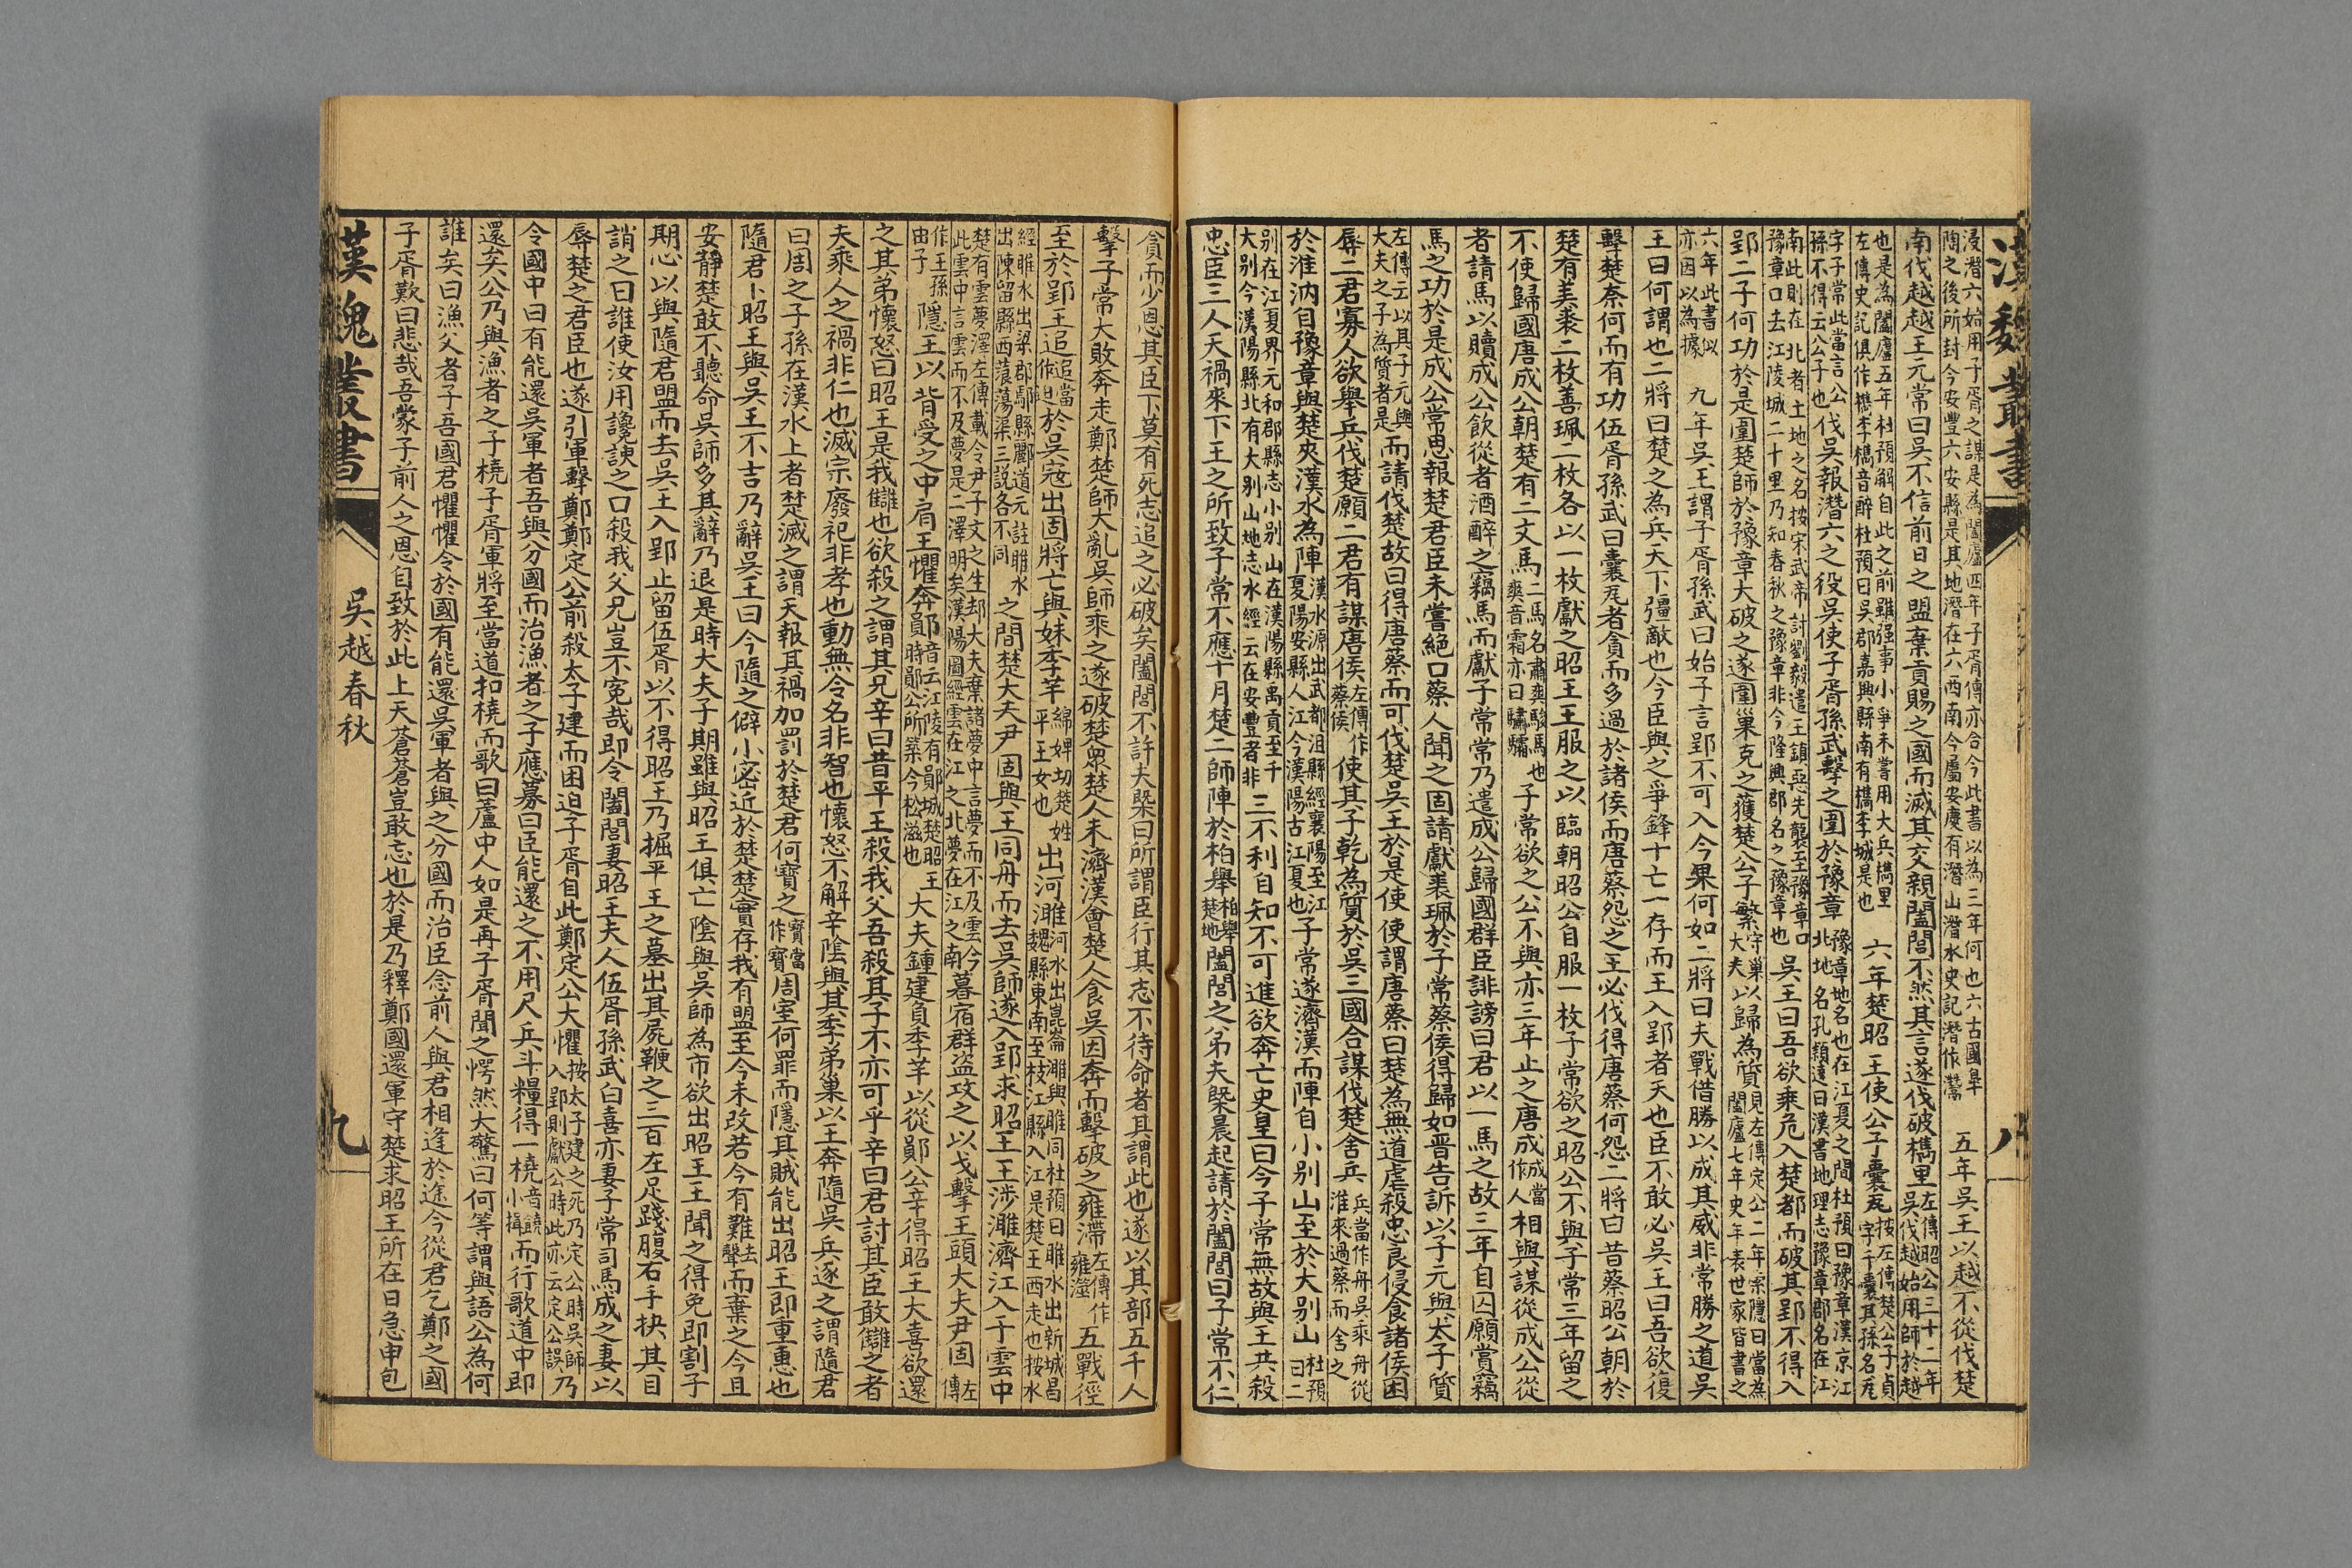 漢魏叢書
八
浸潛六始用子胥之謀是為闔廬四年子胥傳亦合今此書以為三年何也六古國皋
陶之後所封今安豐六安縣是其地潛在六西南今屬安慶有潛山潛水史記潛作灊
五年吳王以越不從伐楚
南伐越越王元常曰吳不信前日之盟棄貢賜之國而滅其交親闔閭不然其言遂伐破檇里
左傳昭公三十二年
吳伐越始用師於越
也是為闔廬五年杜預解自此之前雖彊事小爭未嘗用大兵檇里
左傳史記俱作檇李檇音醉杜預曰吳郡嘉興縣南有檇李城是也
六年楚昭王使公子囊瓦
按左傳楚公子貞
字子囊其孫名瓦
字子常此當言公
孫不得云公子也
伐吳報潛六之役吳使子胥孫武擊之圍於豫章
豫章地名也在江夏之間杜預曰豫章漢京江
北地名孔穎達曰漢書地理志豫章郡名在江
南此則在北者土地之名按宋武帝討劉毅遣王鎮惡先襲至豫章口
豫章口去江陵城二十里乃知春秋之豫章非今隆興郡名之豫章也
吳王曰吾欲乘危入楚都而破其郢不得入
郢二子何功於是圍楚師於豫章大破之遂圍巢克之獲楚公子繁
守巢
大夫
以歸為質
見左傳定公二年索隱曰當為
闔廬七年史年表世家皆書之
六年此書似
亦因以為據
九年吳王謂子胥孫武曰始子言郢不可入今果何如二將曰夫戰借勝以成其威非常勝之道吳
王曰何謂也二將曰楚之為兵天下彊敵也今臣與之爭鋒十亡一存而王入郢者天也臣不敢必吳王曰吾欲復
擊楚奈何而有功伍胥孫武曰囊瓦者貪而多過於諸侯而唐蔡怨之王必伐得唐蔡何怨二將曰昔蔡昭公朝於
楚有美裘二枚善珮二枚各以一枚獻之昭王王服之以臨朝昭公自服一枚子常欲之昭公不與子常三年留之
不使歸國唐成公朝楚有二文馬
二馬名肅爽駿馬也
爽音霜亦曰驌驦
子常欲之公不與亦三年止之唐成
成當
作
人相與謀從成公從
者請馬以贖成公飲從者酒醉之竊馬而獻子常常乃遣成公歸國群臣誹謗曰君以一馬之故三年自囚願賞竊
馬之功於是成公常思報楚君臣未嘗絕口蔡人聞之固請獻裘珮於子常蔡侯得歸如晉告訴以子元與太子質
左傳云以其子元與
大夫之子為質者是
而請伐楚故曰得唐蔡而可伐楚吳王於是使使謂唐蔡曰楚為無道虐殺忠良侵食諸侯困
辱二君寡人欲舉兵伐楚願二君有謀唐侯
左傳作
蔡侯
使其子乾為質於吳三國合謀伐楚舍兵
兵當作舟吳乘舟從
淮來過蔡而舍之
於淮汭自豫章與楚夾漢水為陣
漢水源出武都沮縣經襄陽至江
夏陽安縣人江今漢陽古江夏也
子常遂濟漢而陣自小別山至於大別山
杜預
曰二
別在江夏界元和郡縣志小別山在漢陽縣禹貢至于
大別今漢陽縣北有大別山地志水經云在安豐者非
三不利自知不可進欲奔亡史皇曰今子常無故與王共殺
忠臣三人天禍來下王之所致子常不應十月楚二師陣於柏舉
柏舉
楚地
闔閭之弟夫槩晨起請於闔閭曰子常不仁
貪而少恩其臣下莫有死志追之必破矣闔閭不許夫槩曰所謂臣行其志不待命者其謂此也遂以其部五千人
擊子常大敗奔走鄭楚師大亂吳師乘之遂破楚眾楚人未濟漢會楚人食吳因奔而擊破之雍滯
左傳作
雍澨
五戰徑
至於郢王追
追當
作迫
於吳寇出固將亡與妹季羋
綿婢切楚姓
平王女也
出河濉
河水出崑崙濉與睢同杜預曰睢水出新城昌
魏縣東南至枝江縣入江是楚王西走也按水
經睢水出梁郡鄢縣酈道元註睢水
出陳留縣西蒗蕩渠三說各不同
之間楚大夫尹固與王同舟而去吳師遂入郢求昭王王涉濉濟江入于雲中
楚有雲夢澤左傳載令尹子文之生䢴大夫棄諸夢中言夢而不及雲今
此雲中言雲而不及夢是二澤明矣漢陽圖經雲在江之北夢在江之南
暮宿群盜攻之以戈擊王頭大夫尹固
左
傳
作王孫
由于
隱王以背受之中肩王懼奔鄖
音云江陵有鄖城楚昭王
時鄖公所築今松滋也
大夫鍾建負季羋以從鄖公辛得昭王大喜欲還
之其弟懷怒曰昭王是我讎也欲殺之謂其兄辛曰昔平王殺我父吾殺其子不亦可乎辛曰君討其臣敢讎之者
夫乘人之禍非仁也滅宗廢祀非孝也動無令名非智也懷怒不解辛陰與其季弟巢以王奔隨吳兵逐之謂隨君
曰周之子孫在漢水上者楚滅之謂天報其禍加罰於楚君何寶之
寶當
作寶
周室何罪而隱其賊能出昭王即重惠也
隨君卜昭王與吳王不吉乃辭吳王曰今隨之僻小密近於楚楚實存我有盟至今未改若今有難
去
聲
而棄之今且
安靜楚敢不聽命吳師多其辭乃退是時大夫子期雖與昭王俱亡陰與吳師為市欲出昭王王聞之得免即割子
期心以與隨君盟而去吳王入郢止留伍胥以不得昭王乃掘平王之墓出其屍鞭之三百左足踐腹右手抉其目
誚之曰誰使汝用讒諛之口殺我父兄豈不冤哉即令闔閭妻昭王夫人伍胥孫武白喜亦妻子常司馬成之妻以
辱楚之君臣也遂引軍擊鄭鄭定公前殺太子建而困迫子胥自此鄭定公大懼
按太子建之死乃定公時吳師
入郢則獻公時此亦云定公誤
乃
令國中曰有能還吳軍者吾與分國而治漁者之子應募曰臣能還之不用尺兵斗糧得一橈
音饒
小楫
而行歌道中即
還矣公乃與漁者之子橈子胥軍將至當道扣橈而歌曰蘆中人如是再子胥聞之愕然大驚曰何等謂與語公為何
誰矣曰漁父者子吾國君懼懼令於國有能還吳軍者與之分國而治臣念前人與君相逢於途今從君乞鄭之國
子胥歎曰悲哉吾蒙子前人之恩自致於此上天蒼蒼豈敢忘也於是乃釋鄭國還軍守楚求昭王所在日急申包
漢魏叢書
吳越春秋
九